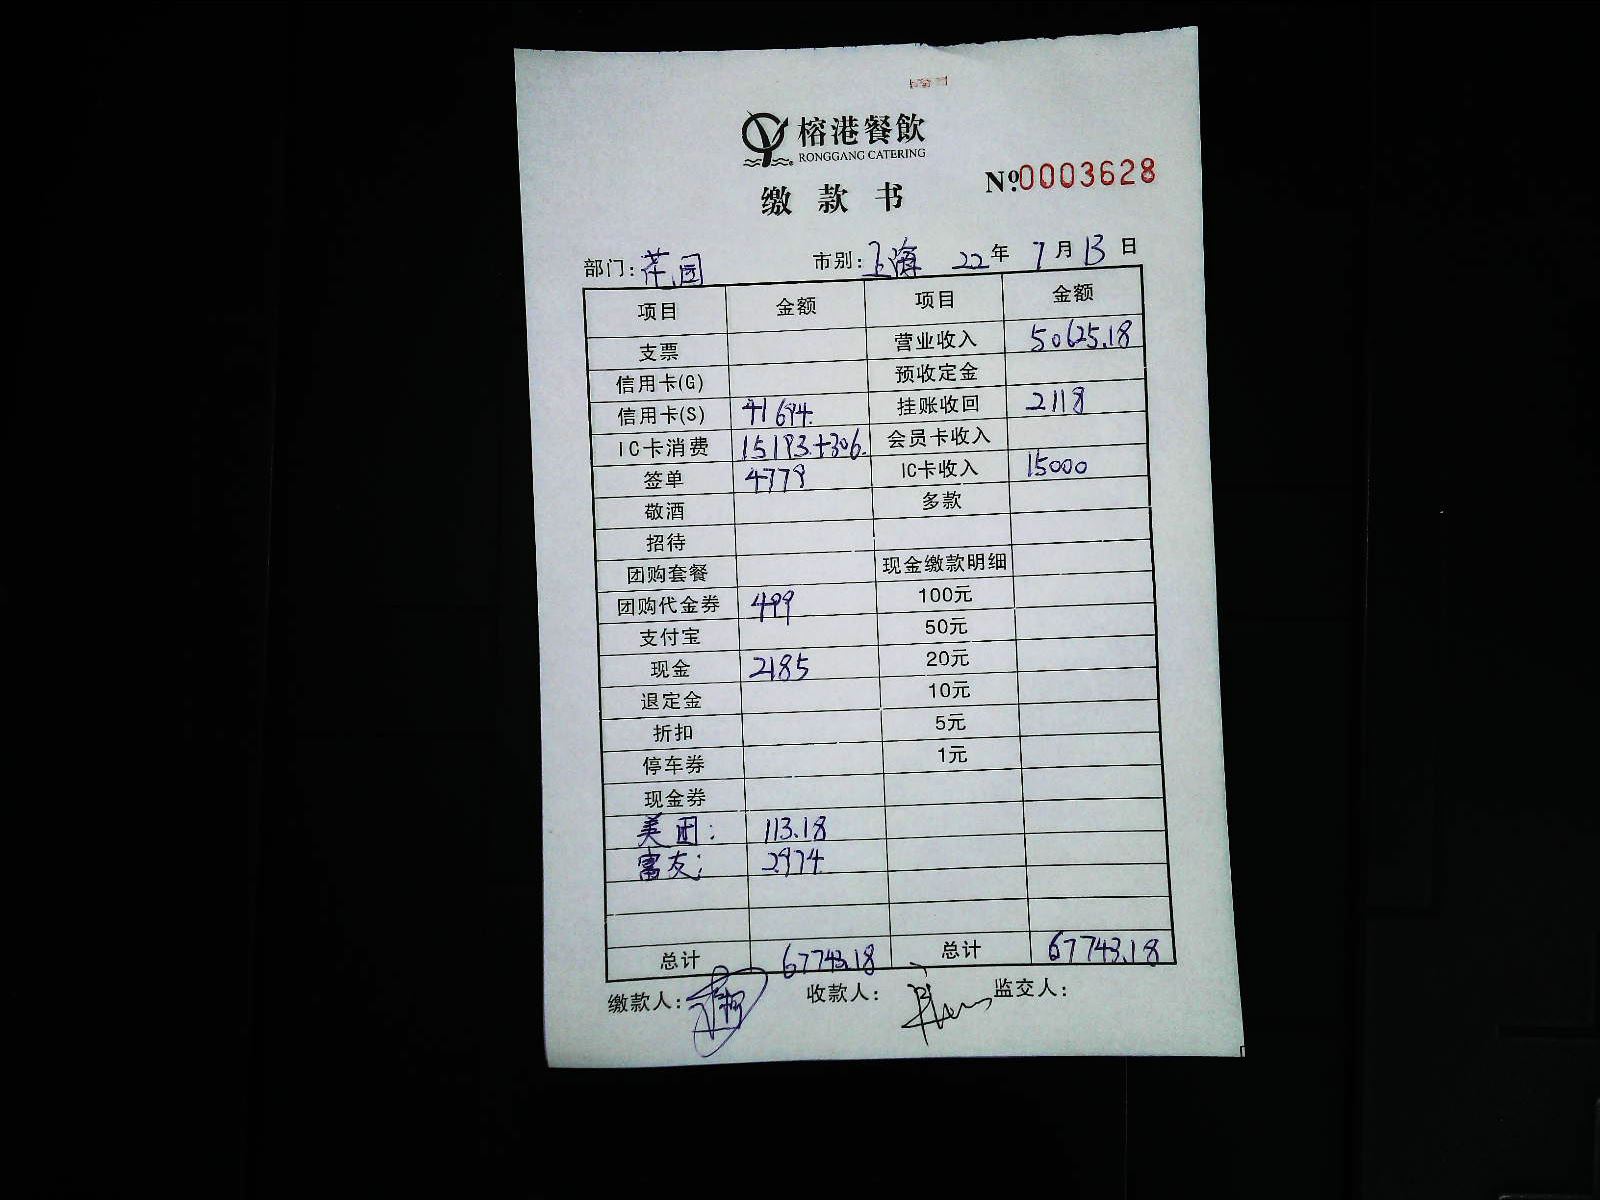 榕港餐飲
RONGGANG CATERING
缴款书 Nº:0003628
部门: 花园 市别: 上海 22年 7月13日
项目 金额 项目 金额
支票 营业收入 50625.18
信用卡(G) 预收定金
信用卡(S) 41694. 挂账收回 2118
IC卡消费 15193.+306. 会员卡收入
签单 4779 IC卡收入 15000
敬酒 多款
招待
团购套餐 现金缴款明细
团购代金券 499 100元
支付宝 50元
现金 2185 20元
退定金 10元
折扣 5元
停车券 1元
现金券
美团: 113.18
富友: 2974.
总计 67743.18 总计 67743.18
缴款人: 收款人: 监交人: